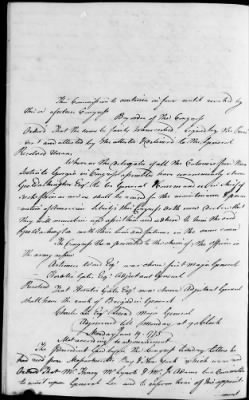 This Commission to continue in force until revoked by
this or a future Congress
By order of the Congress
Ordered That the same be fairly transcribed signed by the President
and attested by the Secretary & delivered to the General
Resolved
Whereas The delegates of all the Colonies from Nova
Scotia to Georgia in Congress assembled have unanimously chosen
Geo Washington Esqr to be General & commander in chief of
such forces as are or shall be raised for the maintenance & preservation
of american liberty this Congress doth now declare that
they will maintain and assist him and adhere to him the said
Geo Washington with their lives and fortunes in the same cause
The Congress then proceeded to the choice of the Officers in
the army when
Artemas Ward Esqr was chosen first major General
Horatio Gates Esqr Adjutant General
Resolved That Horatio Gates Esqr now chosen Adjutant General
shall have the rank of Brigadier General
Charles Lee Esqr Second Major General
Adjourned till Monday at 9 o Clock
Monday June 19. 1775
Met according to adjournment
The President laid before the Congress sundry letters he
had recd from Massachusetts Bay & New York which were read
Ordered That Mr Henry Mr Lynch & Mr J. Adams be a Committee
to wait upon General Lee and to inform him of his appointment